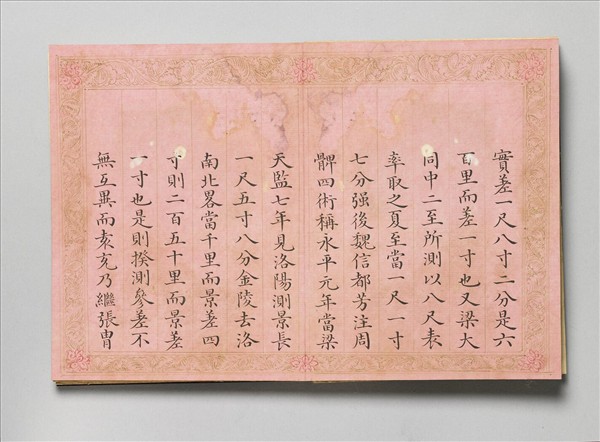 實差一尺八寸二分是六
百里而差一寸也又梁大
同中二至所測以八尺表
率取之夏至當一尺一寸
七分强後魏信都芳注周
髀四術稱永平元年當梁
天監七年見洛陽測景長
一尺五寸八分金陵去洛
南北畧當千里而景差四
寸則二百五十里而景差
一寸也是則揆測參差不
無互異而袁充乃繼張胄